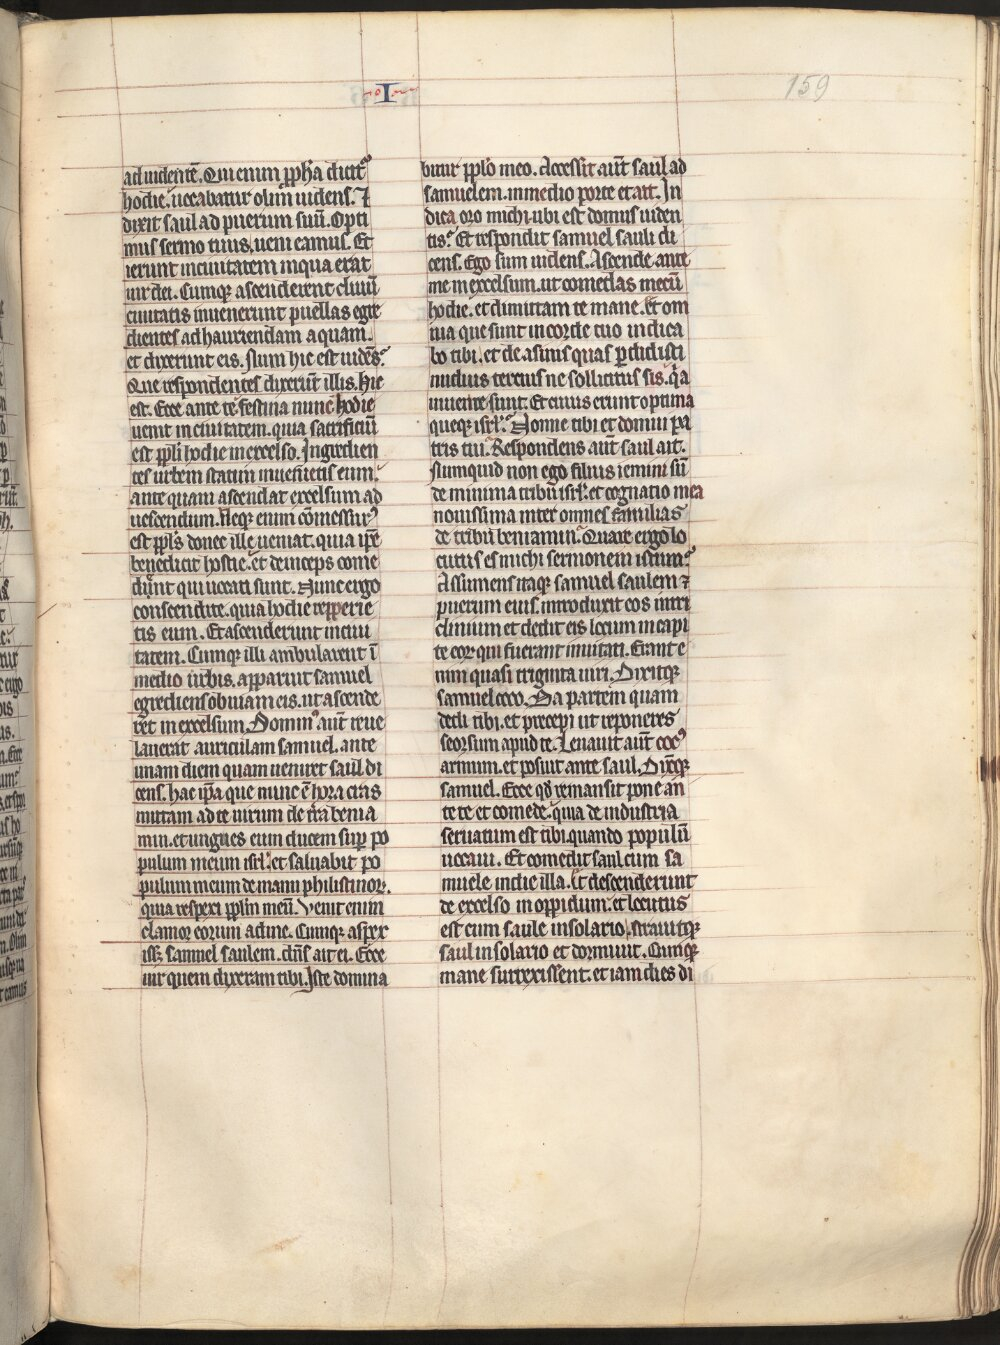 I
159
ad uidentē. Qui enim ꝓpħa dicit᷑
hodie. uocabatur olim uidens. ⁊
dixit saul ad puerum suū. Opti
mus sermo tuus. ueni eamus. Et
ierunt in ciuitatem in qua erat
uir dei. Cumqꝫ ascenderent cliuū
ciuitatis inuenerunt puellas egre
dientes ad hauriendam aquam.
et dixerunt eis. Num hic est uidēs.
Que respondentes dixerūt illis. hic
est. Ecce ante te. festina nunc. hodie
uenit in ciuitatem. quia sacrificiū
est ppl̄i hodie in excelso. Ingredien
tes urbem statim inuenietis eum.
ante quam ascendat excelsum ad
uescendum. Neqꝫ enim cōmessur᷒
est ppl̄s donec ille ueniat. quia ip̄e
benedicit hostie. et deinceps come
dunt qui uocati sunt. Nunc ergo
conscendite. quia hodie repperie
tis eum. Et ascenderunt in ciui
tatem. Cumqꝫ illi ambularent ī
medio urbis. apparuit samuel
egrediens obuiam eis. ut ascende
ret in excelsum. Domin᷒ aūt reue
lauerat auriculam samuel. ante
unam diem quam ueniret saul di
cens. hac ip̄a que nunc ē hora cras
mittam ad te uirum de t̄ra benia
min. et unges eum ducem sup̄ po
pulum meum isrl̄. et saluabit po
pulum meum de manu philistinoꝝ.
quia respexi ppl̄m meū. Venit enim
clamor eorum ad me. Cumqꝫ aspex
issꝫ samuel saulem. dn̄s ait ei. Ecce
uir quem dixeram tibi. Iste domina
bitur ppl̄o meo. Accessit aūt saul ad
samuelem. in medio porte et ait. In
dica oro michi. ubi est domus uiden
tis. Et respondit samuel sauli di
cens. Ego sum uidens. Ascende ante
me in excelsum. ut comedas mecū
hodie. et dimittam te mane. Et om
nia que sunt in corde tuo indica
bo tibi. et de asinis quas ꝑdidisti
nudius tercius ne sollicitus sis. q̄a
inuente sunt. Et cuius erunt optima
queqꝫ isrl̄. Nonne tibi et domui pa
tris tui. Respondens aūt saul ait.
Numquid non ego filius iemini sū
de minima tribu isrl̄. et cognatio mea
nouissima inter omnes familias
de tribu beniamin. Quare ergo lo
cutus es michi sermonem istum.
Assumens itaqꝫ samuel saulem ⁊
puerum eius. introduxit eos in tri
clinium et dedit eis locum in capi
te eoꝝ qui fuerant inuitati. Erant e
nim quasi triginta uiri. Dixitqꝫ
samuel coco. Da partem quam
dedi tibi. et precepi ut reponeres
seorsum apud te. Leuauit aūt coc᷒
armum. et posuit ante saul. Dixitqꝫ
samuel. Ecce qd̄ remansit pone an
te te et comede. quia de industria
seruatum est tibi. quando populū
uocaui. Et comedit saul cum sa
muele in die illa. Et descenderunt
de excelso in oppidum. et locutus
est cum saule in solario. strauitqꝫ
saul in solario et dormiuit. Cumqꝫ
mane surrexissent. et iam dies di